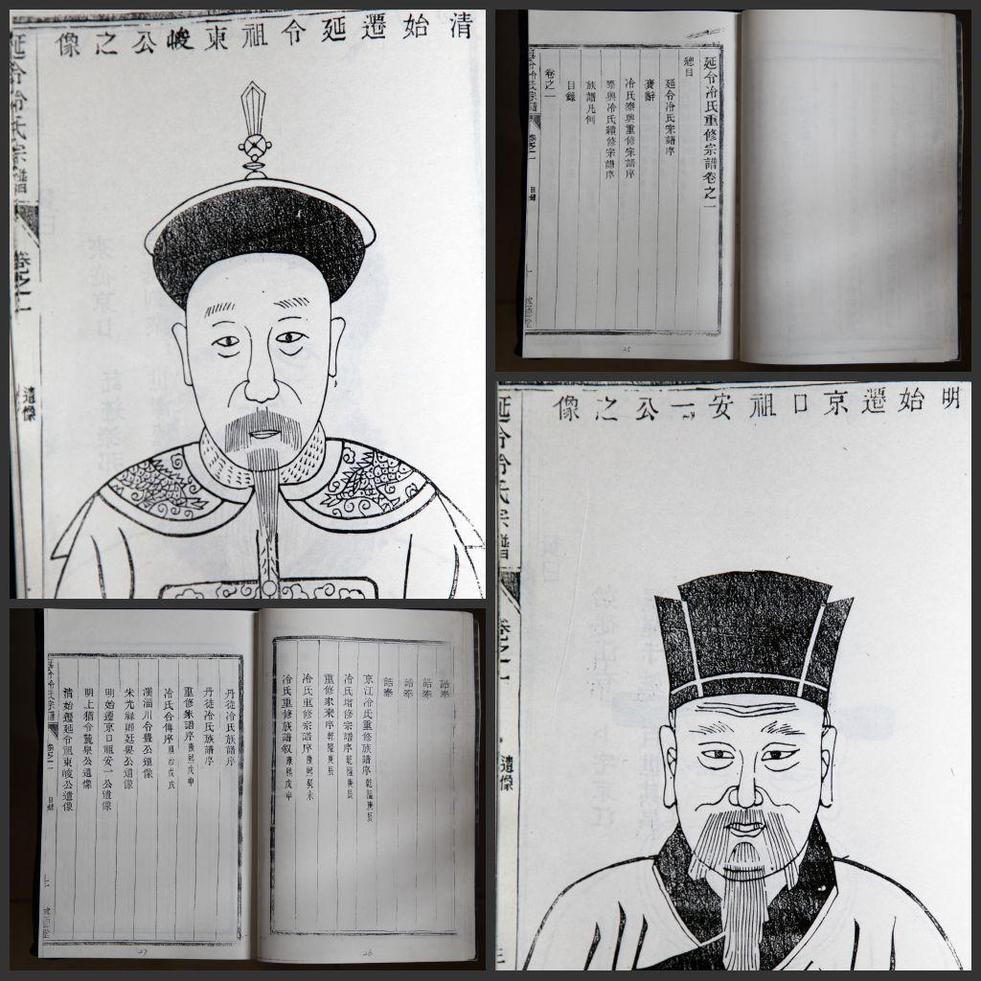 清始遷延令祖東峻公之像
延令冷氏宗譜
卷之一
遺像
延令冷氏重修宗譜卷之一
總目
延令冷氏宗譜序
冷氏泰興重修宗譜序
泰興冷氏續修宗譜序
族譜凡例
目錄
卷之一
延令冷氏宗譜
卷之一
目錄
25
誥奉
誥奉
誥奉
誥奉
京江冷氏重修族譜序乾隆庚辰
冷氏增修宗譜序乾隆庚辰
冷氏重修宗譜序康熙癸未
冷氏重修族譜叙康熙戊申
26
丹徒冷氏族譜序
丹徒冷氏族譜序
重修宗譜序
冷氏合傳序
漢淄川令豊公遺像
宋光祿卿廷叟公遺像
明始遷京口祖安一公遺像
明上猶令麓泉公遺像
清始遷延令祖東峻公遺像
卷之一
目錄
27
明始遷京口祖安一公之像
延令冷氏宗譜
卷之一
遺像
三